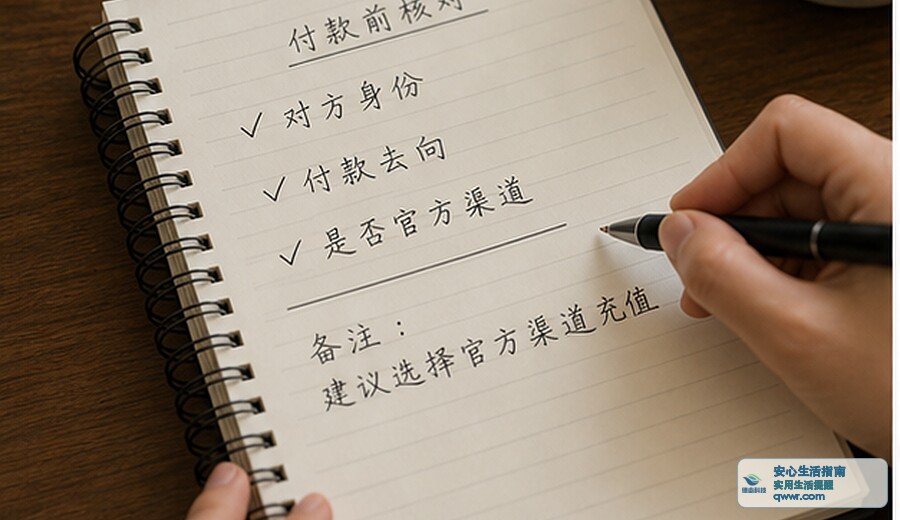 付款前核对
✓ 对方身份
✓ 付款去向
✓ 是否官方渠道
备注：
建议选择官方渠道充值
安心生活指南
实用生活提醒
qwwr.com